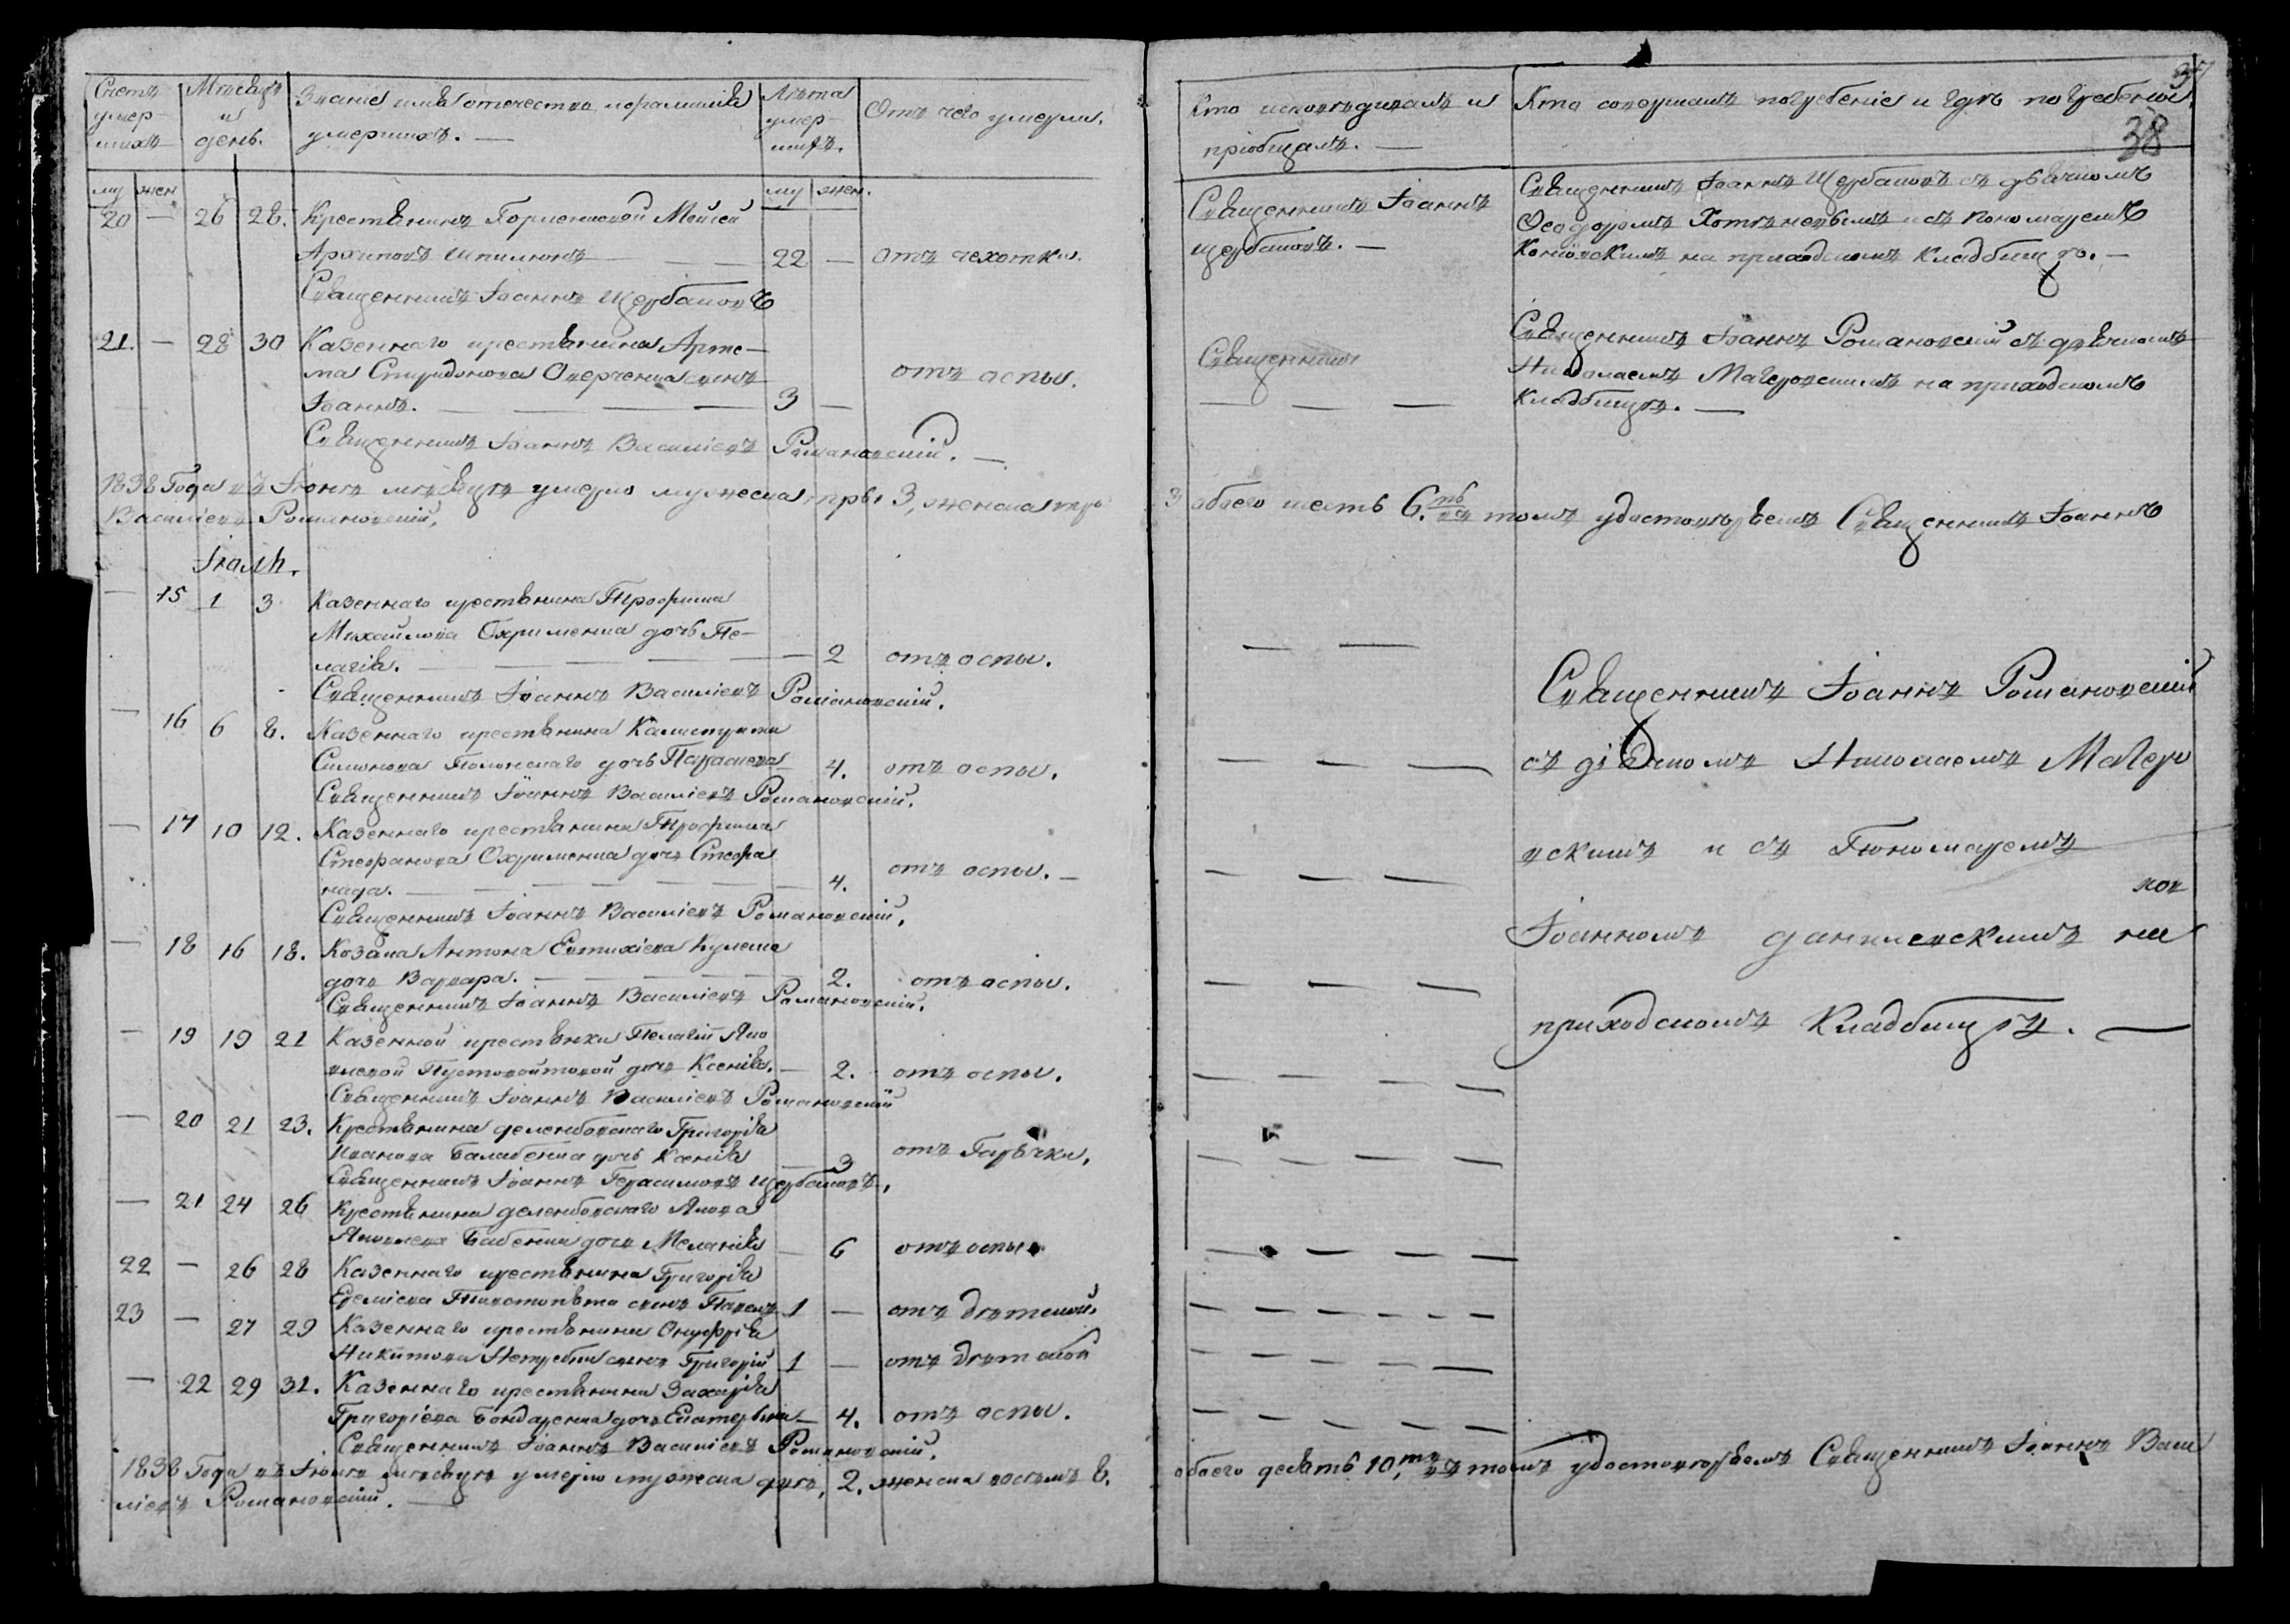 Счетъ умершихъ
Мѣсяцъ и день.
Званіе имя отечество и фамилія умершихъ. —
Лѣта умершихъ.
Отъ чего умерли.
му жен му жен.
20 — 26 28. Крестьянинъ Моисей
Архиповъ — — 22 — отъ чехотки.
Священникъ Іоаннъ Щербаковъ
21. — 28 30 Казеннаго крестьянина Арте-
ма Спиридонова сынъ отъ оспы.
Іоаннъ. — — — 3 —
Священникъ Іоаннъ Василіевъ Романовскій. —
1838 Года въ Іюнѣ мѣсяцѣ умерло мужеска три 3, женска три
Василіевъ Романовскій.
Іюль.
— 15 1 3 Казеннаго крестьянина Трофима
Михайлова Охрименка дочь Пе-
лагія. — — — — 2 отъ оспы.
Священникъ Іоаннъ Василіевъ Романовскій.
— 16 6 8. Казеннаго крестьянина Калистрата
Симонова Полонскаго дочь Параскева 4. отъ оспы.
Священникъ Іоаннъ Василіевъ Романовскій.
— 17 10 12. Казеннаго крестьянина Трофима
Стефанова Охрименка дочь Стефа
нида. — — — — 4. отъ оспы. —
Священникъ Іоаннъ Василіевъ Романовскій.
— 18 16 18. Козака Антона Евтихіева Кулеша
дочь Варвара. — — — 2. отъ оспы.
Священникъ Іоаннъ Василіевъ Романовскій.
— 19 19 21 Казенной крестьянки Пелагіи Яко
влевой Пустовойтовой дочь Ксенія. — 2. отъ оспы.
Священникъ Іоаннъ Василіевъ Романовскій
— 20 21 23. Крестьянина Григорія
Иванова Балабенка дочь Ксенія — 3 отъ Гарячки.
Священникъ Іоаннъ Герасимовъ Щербаковъ.
— 21 24 26 Крестьянина Якова
Яковлева Бабенка дочь Меланія — 6 отъ оспы
22 — 26 28 Казеннаго крестьянина Григорія
Еремѣева сынъ Павелъ 1 — отъ
23 — 27 29 Казеннаго крестьянина Онуфрія
Никитова сынъ Григорій 1 — отъ
— 22 29 31. Казеннаго крестьянина Захарія
Григоріева Бондаренка дочь Екатерина — 4. отъ оспы.
Священникъ Іоаннъ Василіевъ Романовскій.
1838 Года въ Іюлѣ мѣсяцѣ умерло мужеска два, 2. женска восемь 8.
ліевъ Романовскій. —
37
38
Кто исповѣдывалъ и пріобщалъ. —
Кто совершалъ погребеніе и гдѣ погребены
Священникъ Іоаннъ
Щербаковъ. —
Священникъ Іоаннъ Щербаковъ съ дьячкомъ
Ѳеодоромъ и съ пономаремъ
на приходскомъ кладбищѣ. —
Священникъ
— — —
Священникъ Іоаннъ Романовскій съ дьячкомъ
Николаемъ Магеровскимъ на приходскомъ
кладбищѣ. —
3 обоего шесть 6.ть въ томъ удостовѣряемъ Священникъ Іоаннъ
Священникъ Іоаннъ Романовскій
съ дьячкомъ Николаемъ Магеро
вскимъ и съ Пономаремъ
Іоанномъ на
приходскомъ Кладбищѣ. —
обоего десять 10.ть въ томъ удостовѣряемъ Священникъ Іоаннъ Васи